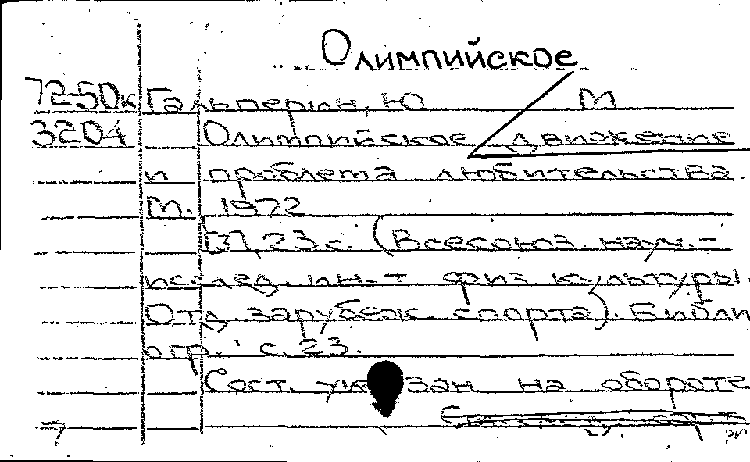 Олимпийское
72-50к Гальперин, Ю М
3204 Олимпийское движение
и проблема любительства.
М. 1972
[3], 23 с. (Всесоюз. науч.-
исслед. ин-т физ. культуры.
Отд. зарубеж. спорта). Библи
огр.: с. 23.
Сост. указан на обороте